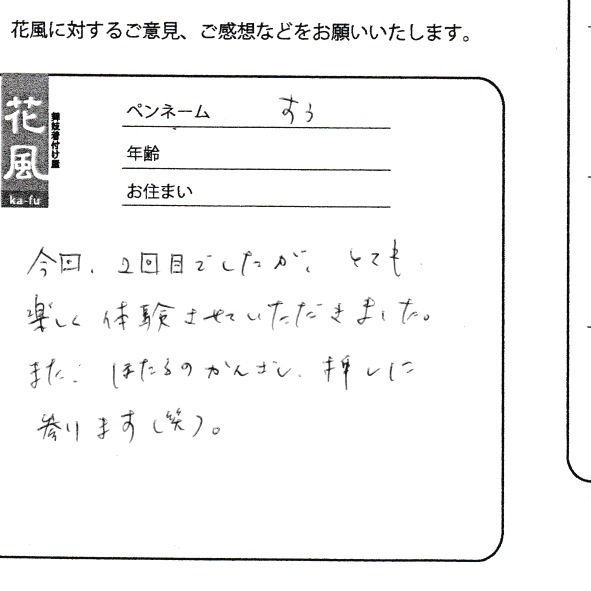 花風に対するご意見、ご感想などをお願いいたします。
花風
舞妓着付け屋
ka-fu
ペンネーム すう
年齢
お住まい
今回、2回目でしたが、とても
楽しく体験させていただきました。
また、ほたるのかんざし、挿しに
参ります(笑)。